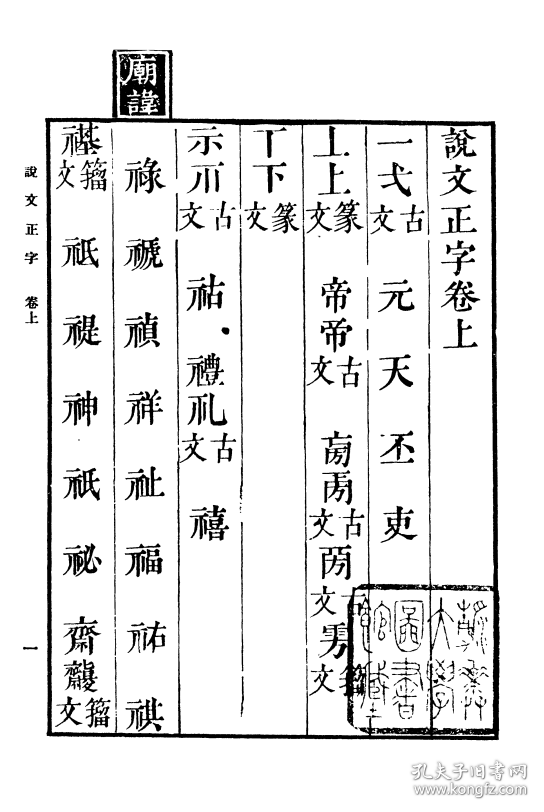 說文正字卷上
一弌古文 元 天 丕 吏
丄上篆文 帝帝古文 古文 古文 篆文
丅下篆文
示 古文 祜 禮礼古文 禧
祿 禠 禎 祥 祉 福 祐 祺
禥籀文 祇 禔 神 祇 祕 齋 籀文
廟諱
說文正字 卷上
一
孔夫子旧书网
www.kongfz.com